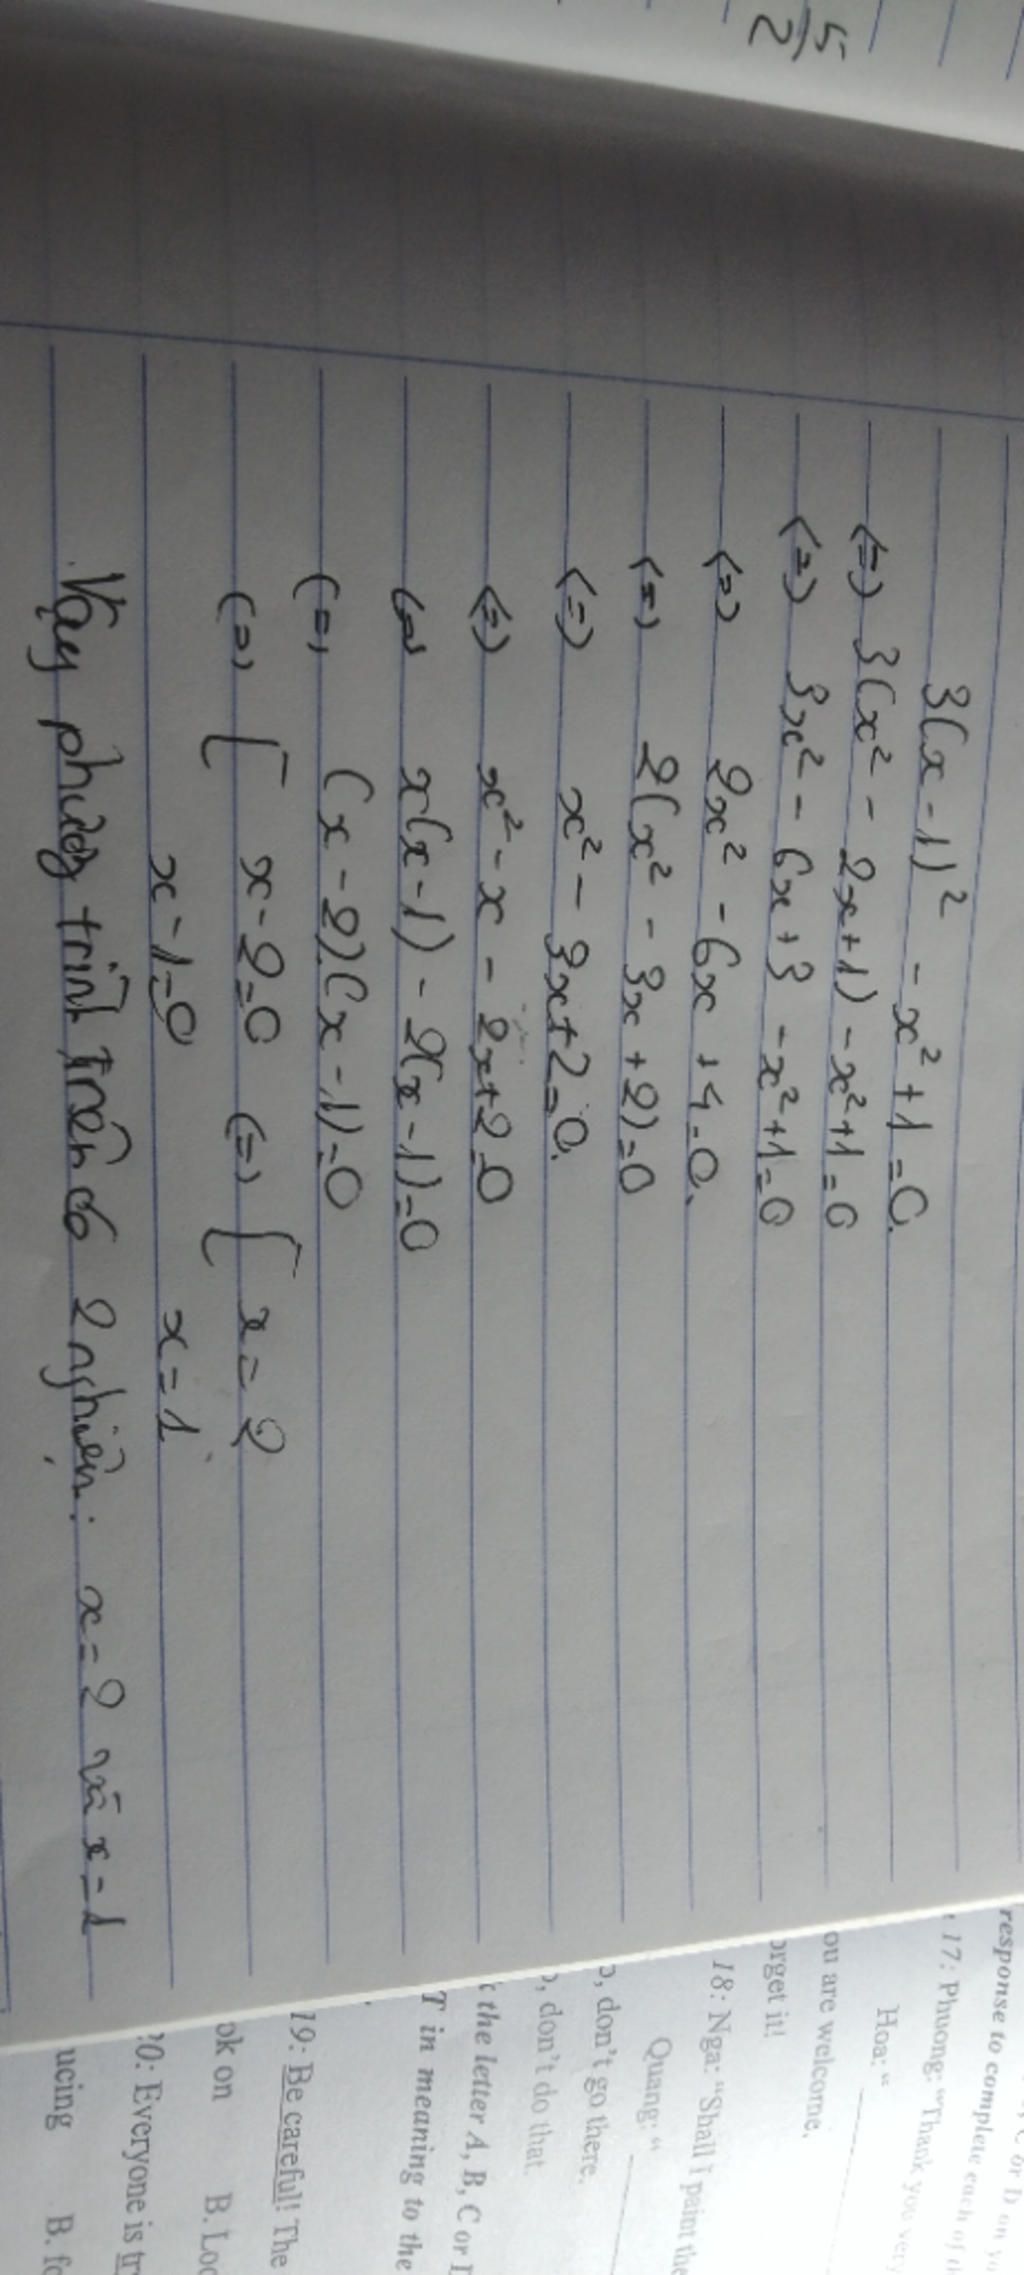 5
2
3(x-1)² - x² + 1 = 0.
(=) 3(x² - 2x + 1) - x² + 1 = 0
(=) 3x² - 6x + 3 - x² + 1 = 0
(=) 2x² - 6x + 4 = 0.
(=) 2(x² - 3x + 2) = 0
(=) x² - 3x + 2 = 0.
(=) x² - x - 2x + 2 = 0
(=) x(x - 1) - 2(x - 1) = 0
(=) (x - 2).(x - 1) = 0
(=) [ x - 2 = 0 (=) [ x = 2
x - 1 = 0 x = 1
Vậy phương trình trên có 2 nghiệm: x = 2 và x = 1
C or D on yo
response to complete each of th
17: Phuong: "Thank you very
Hoa: "
ou are welcome.
orget it!
18: Nga: "Shall I paint the
Quang: "
o, don't go there.
o, don't do that.
the letter A, B, C or D
T in meaning to the
19: Be careful! The
ok on B. Loo
20: Everyone is tr
ucing B. fo